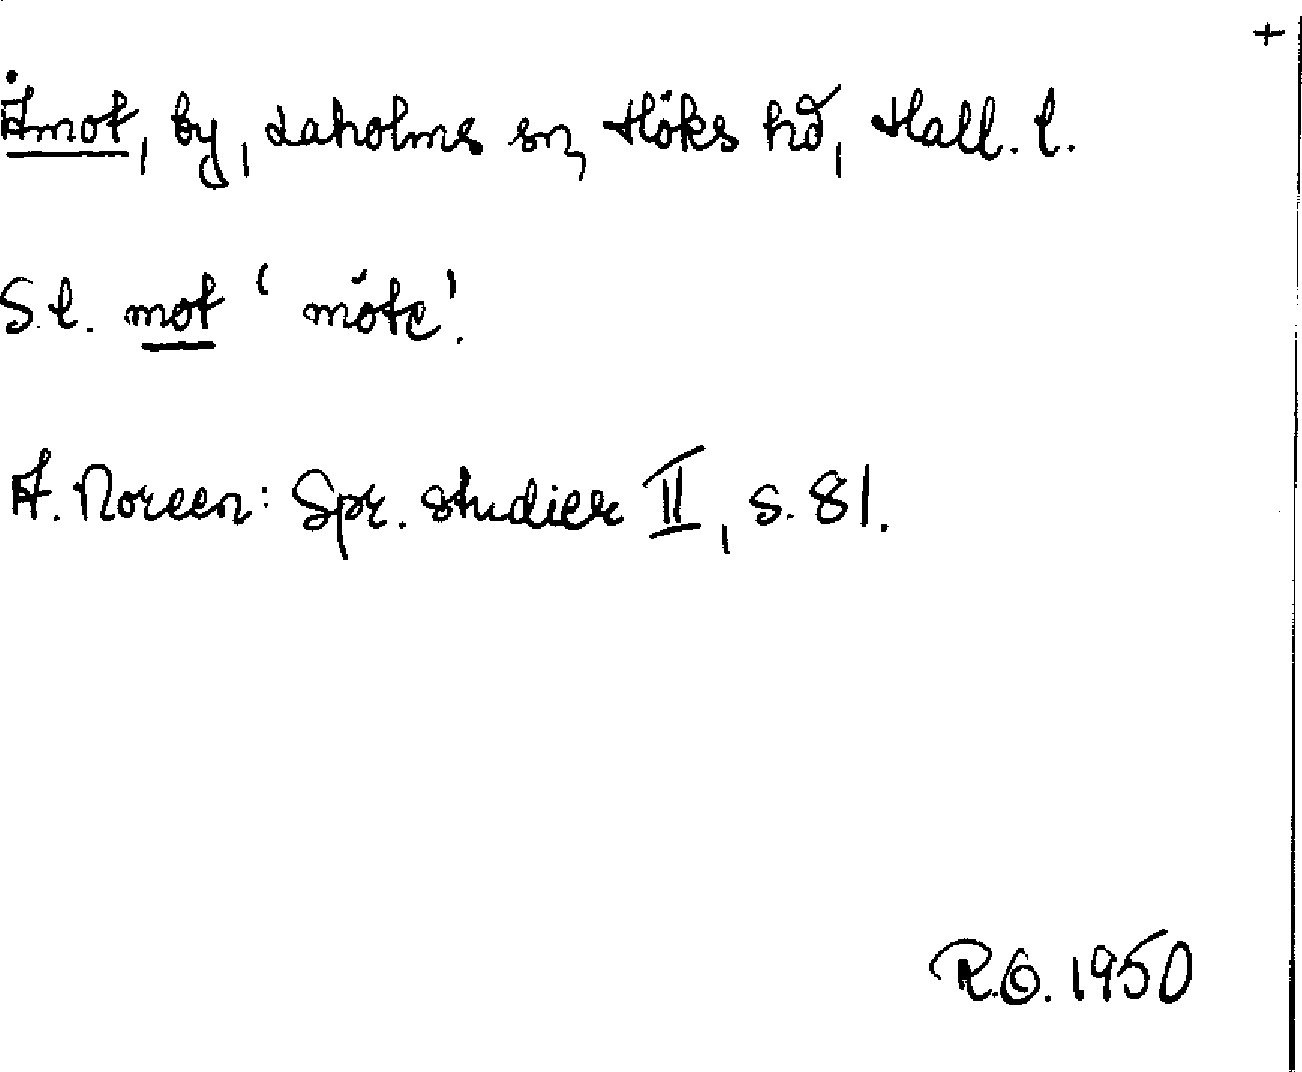 +
Åmot, by, Laholms sn, Höks hd, Hall. l.
S. l. mot 'möte'.
A. Noreen: Spr. studier II, s. 81.
R.O. 1950